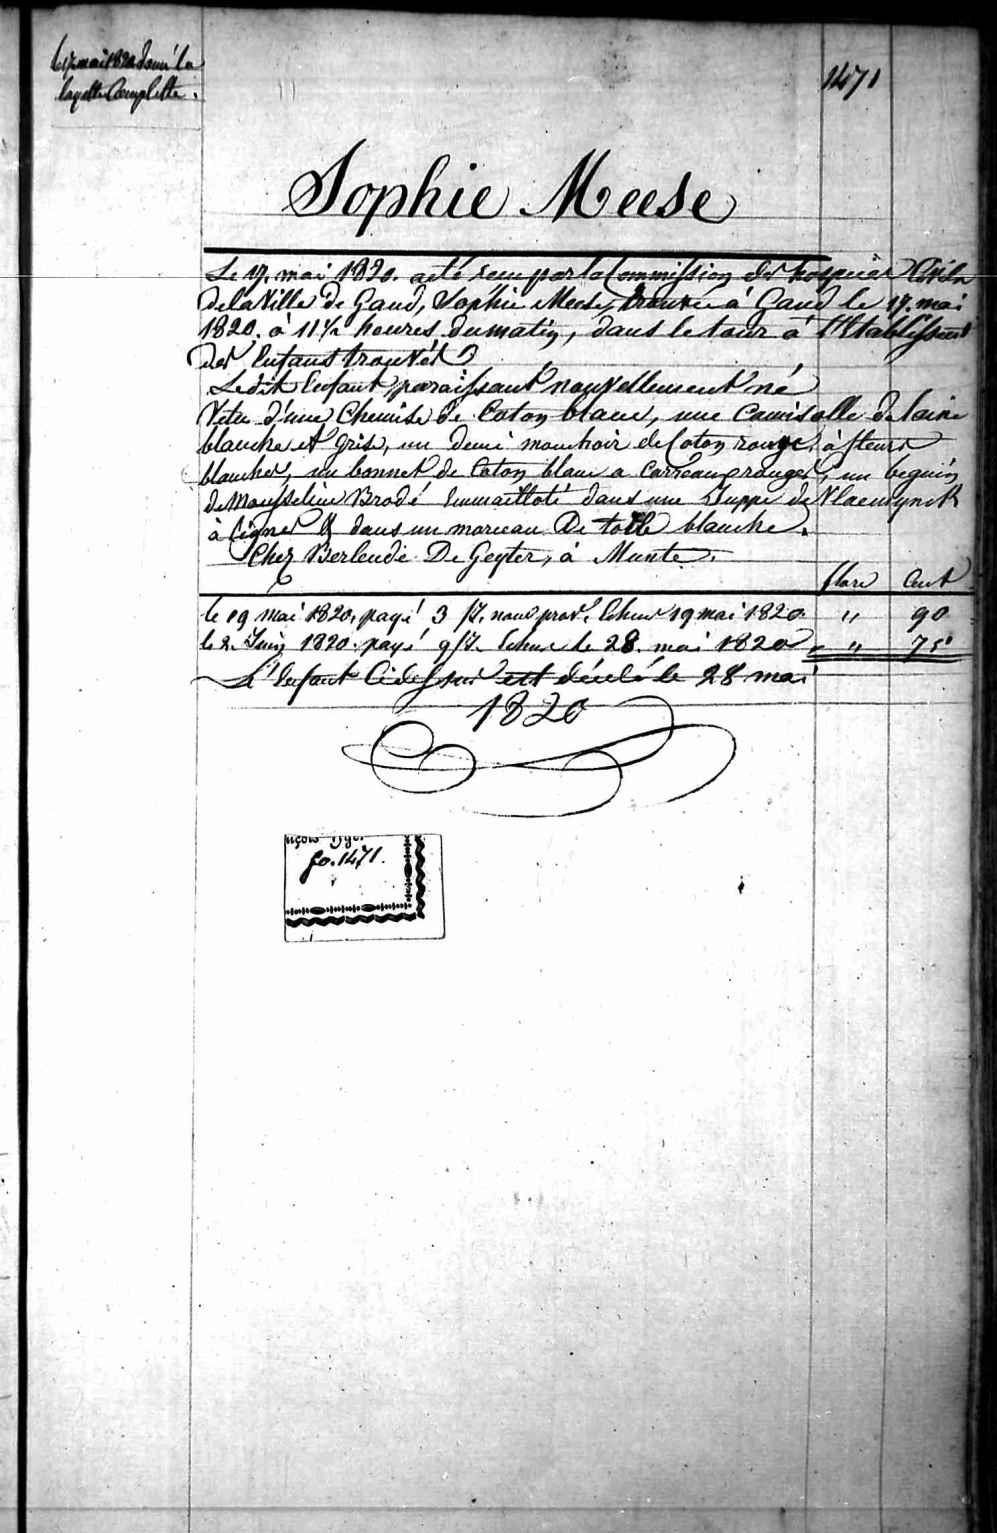 le 17 mai 1820 donné la
layette Complette.
1471
Sophie Meese
Le 17. mai 1820. a eté recu par la Commission des hospices Civils
de la Ville de Gand, Sophie Meese, trouvée à Gand le 17. mai
1820. à 11½ heures du matin, dans le tour à l'Etablissmt
des Enfants trouvés
Le dit Enfant paraissant nouvellement né
Vetu d'une Chemise de Coton blanc, une Camisolle de laine
blanche et gris, un demi mouchoir de Coton rouge à fleurs
blanches, un bonnet de Coton blanc a Carreaux rouges, un beguin
de Mousseline Brodé Emmailloté dans une Juppe de
à Lignes & dans un morceau De toile blanche.
Chez Berlendie De Geyter, à Munte.
flors Cent
le 19 mai 1820. payé 3 Echus 19 mai 1820 " 90
le 2. Juin 1820. payé 9 Echus le 28. mai 1820 " 75
L'Enfant Cidessus est décédé le 28 mai
1820
fo. 1471.